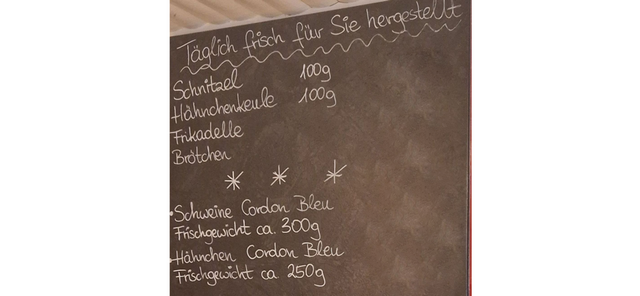 Täglich frisch für Sie hergestellt
Schnitzel 100g
Hähnchenkeule 100g
Frikadelle
Brötchen
* * *
• Schweine Cordon Bleu
Frischgewicht ca. 300g
• Hähnchen Cordon Bleu
Frischgewicht ca 250g